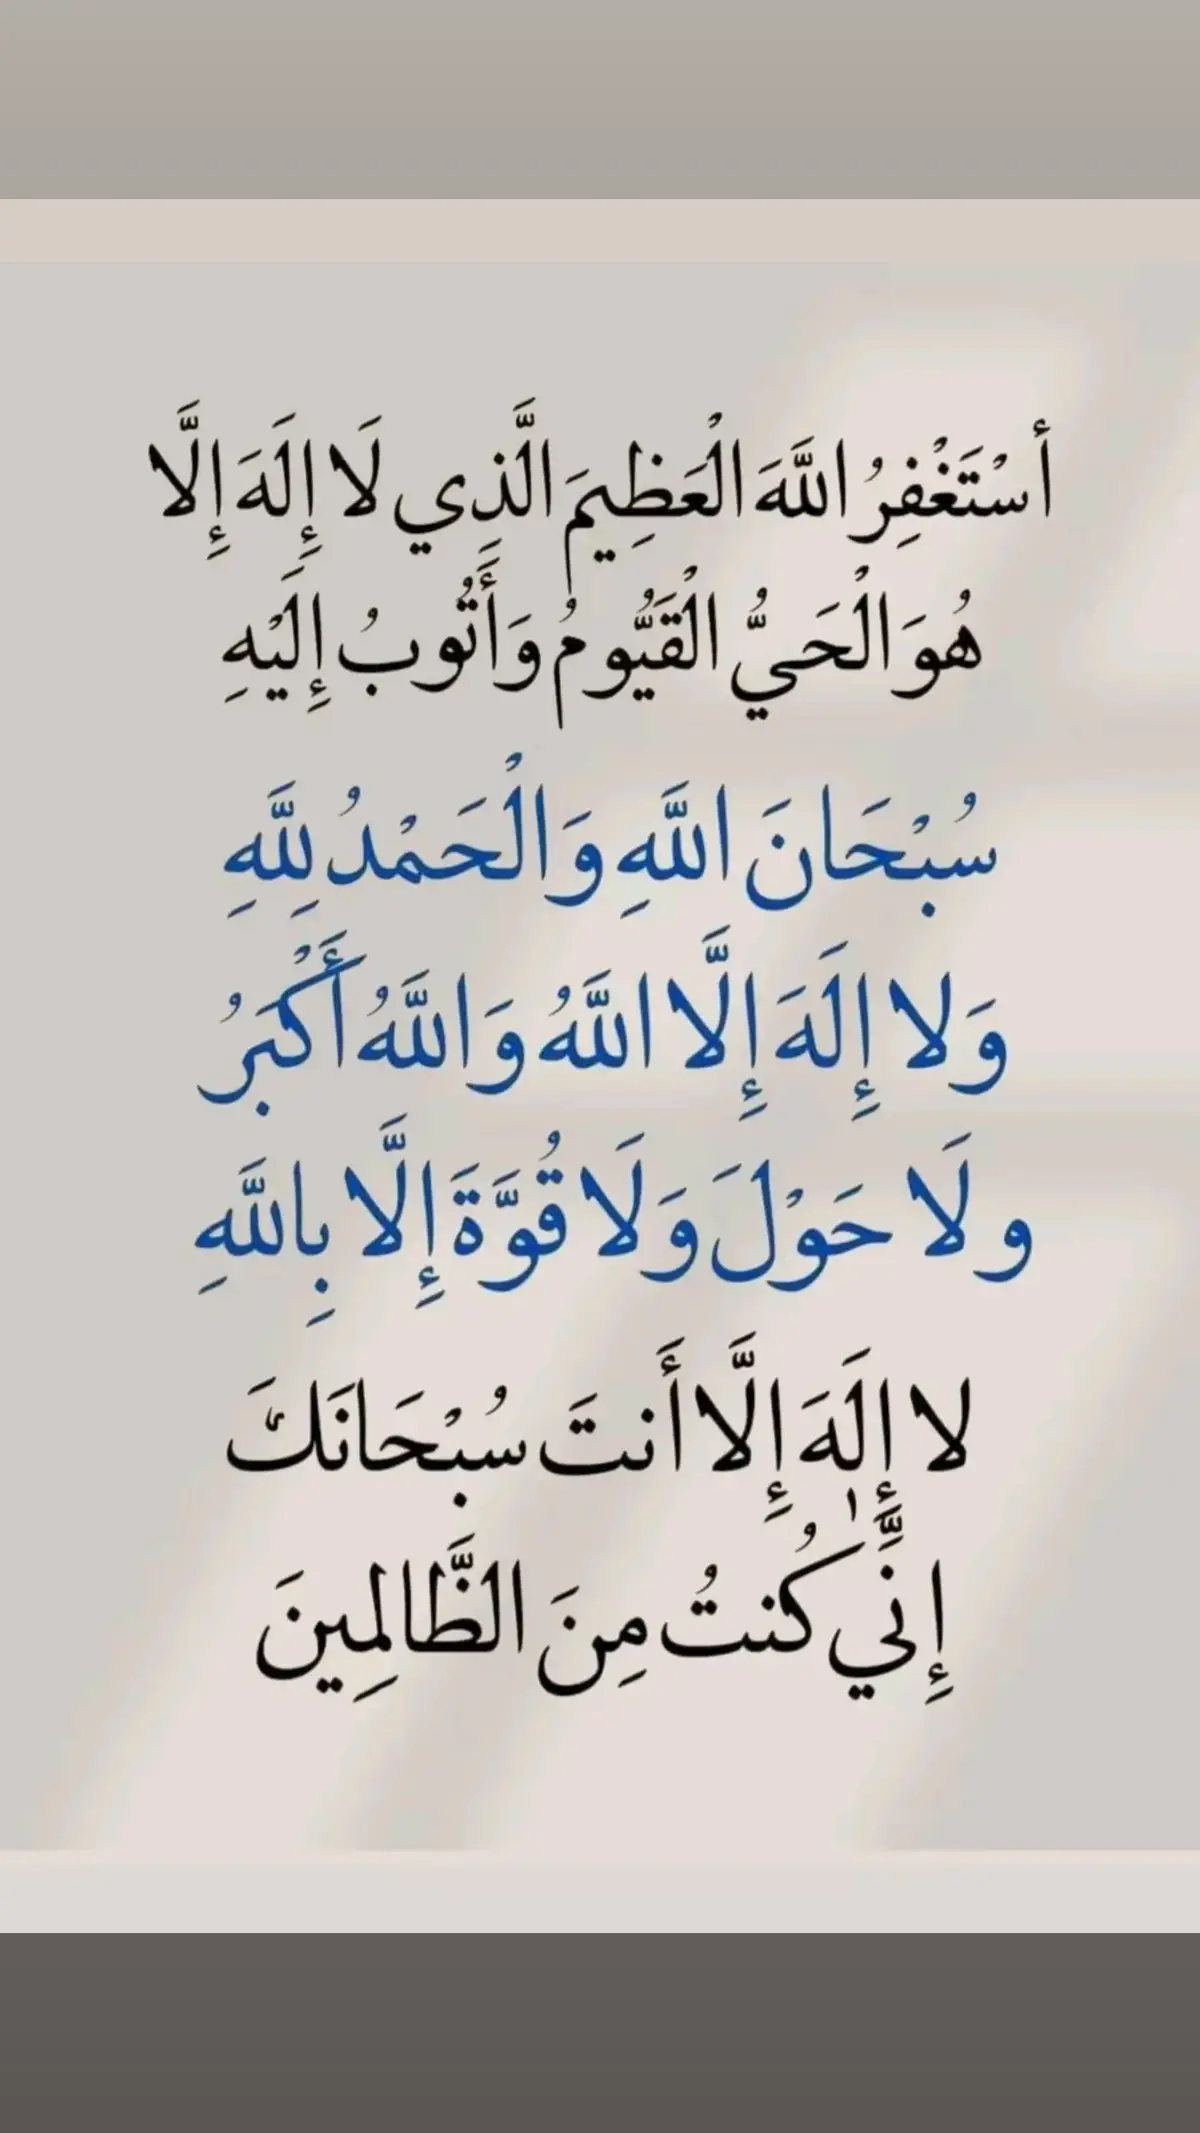 أسْتَغْفِرُ اللَّهَ الْعَظِيمَ الَّذِي لَا إِلَهَ إِلَّا
هُوَ الْحَيُّ الْقَيُّومُ وَأَتُوبُ إِلَيْهِ
سُبْحَانَ اللَّهِ وَالْحَمْدُ لِلَّهِ
وَلا إِلَهَ إِلَّا اللَّهُ وَاللَّهُ أَكْبَرُ
ولَا حَوْلَ وَلَا قُوَّةَ إِلَّا بِاللَّهِ
لا إِلَٰهَ إِلَّا أَنتَ سُبْحَانَكَ
إِنِّي كُنتُ مِنَ الظَّالِمِينَ